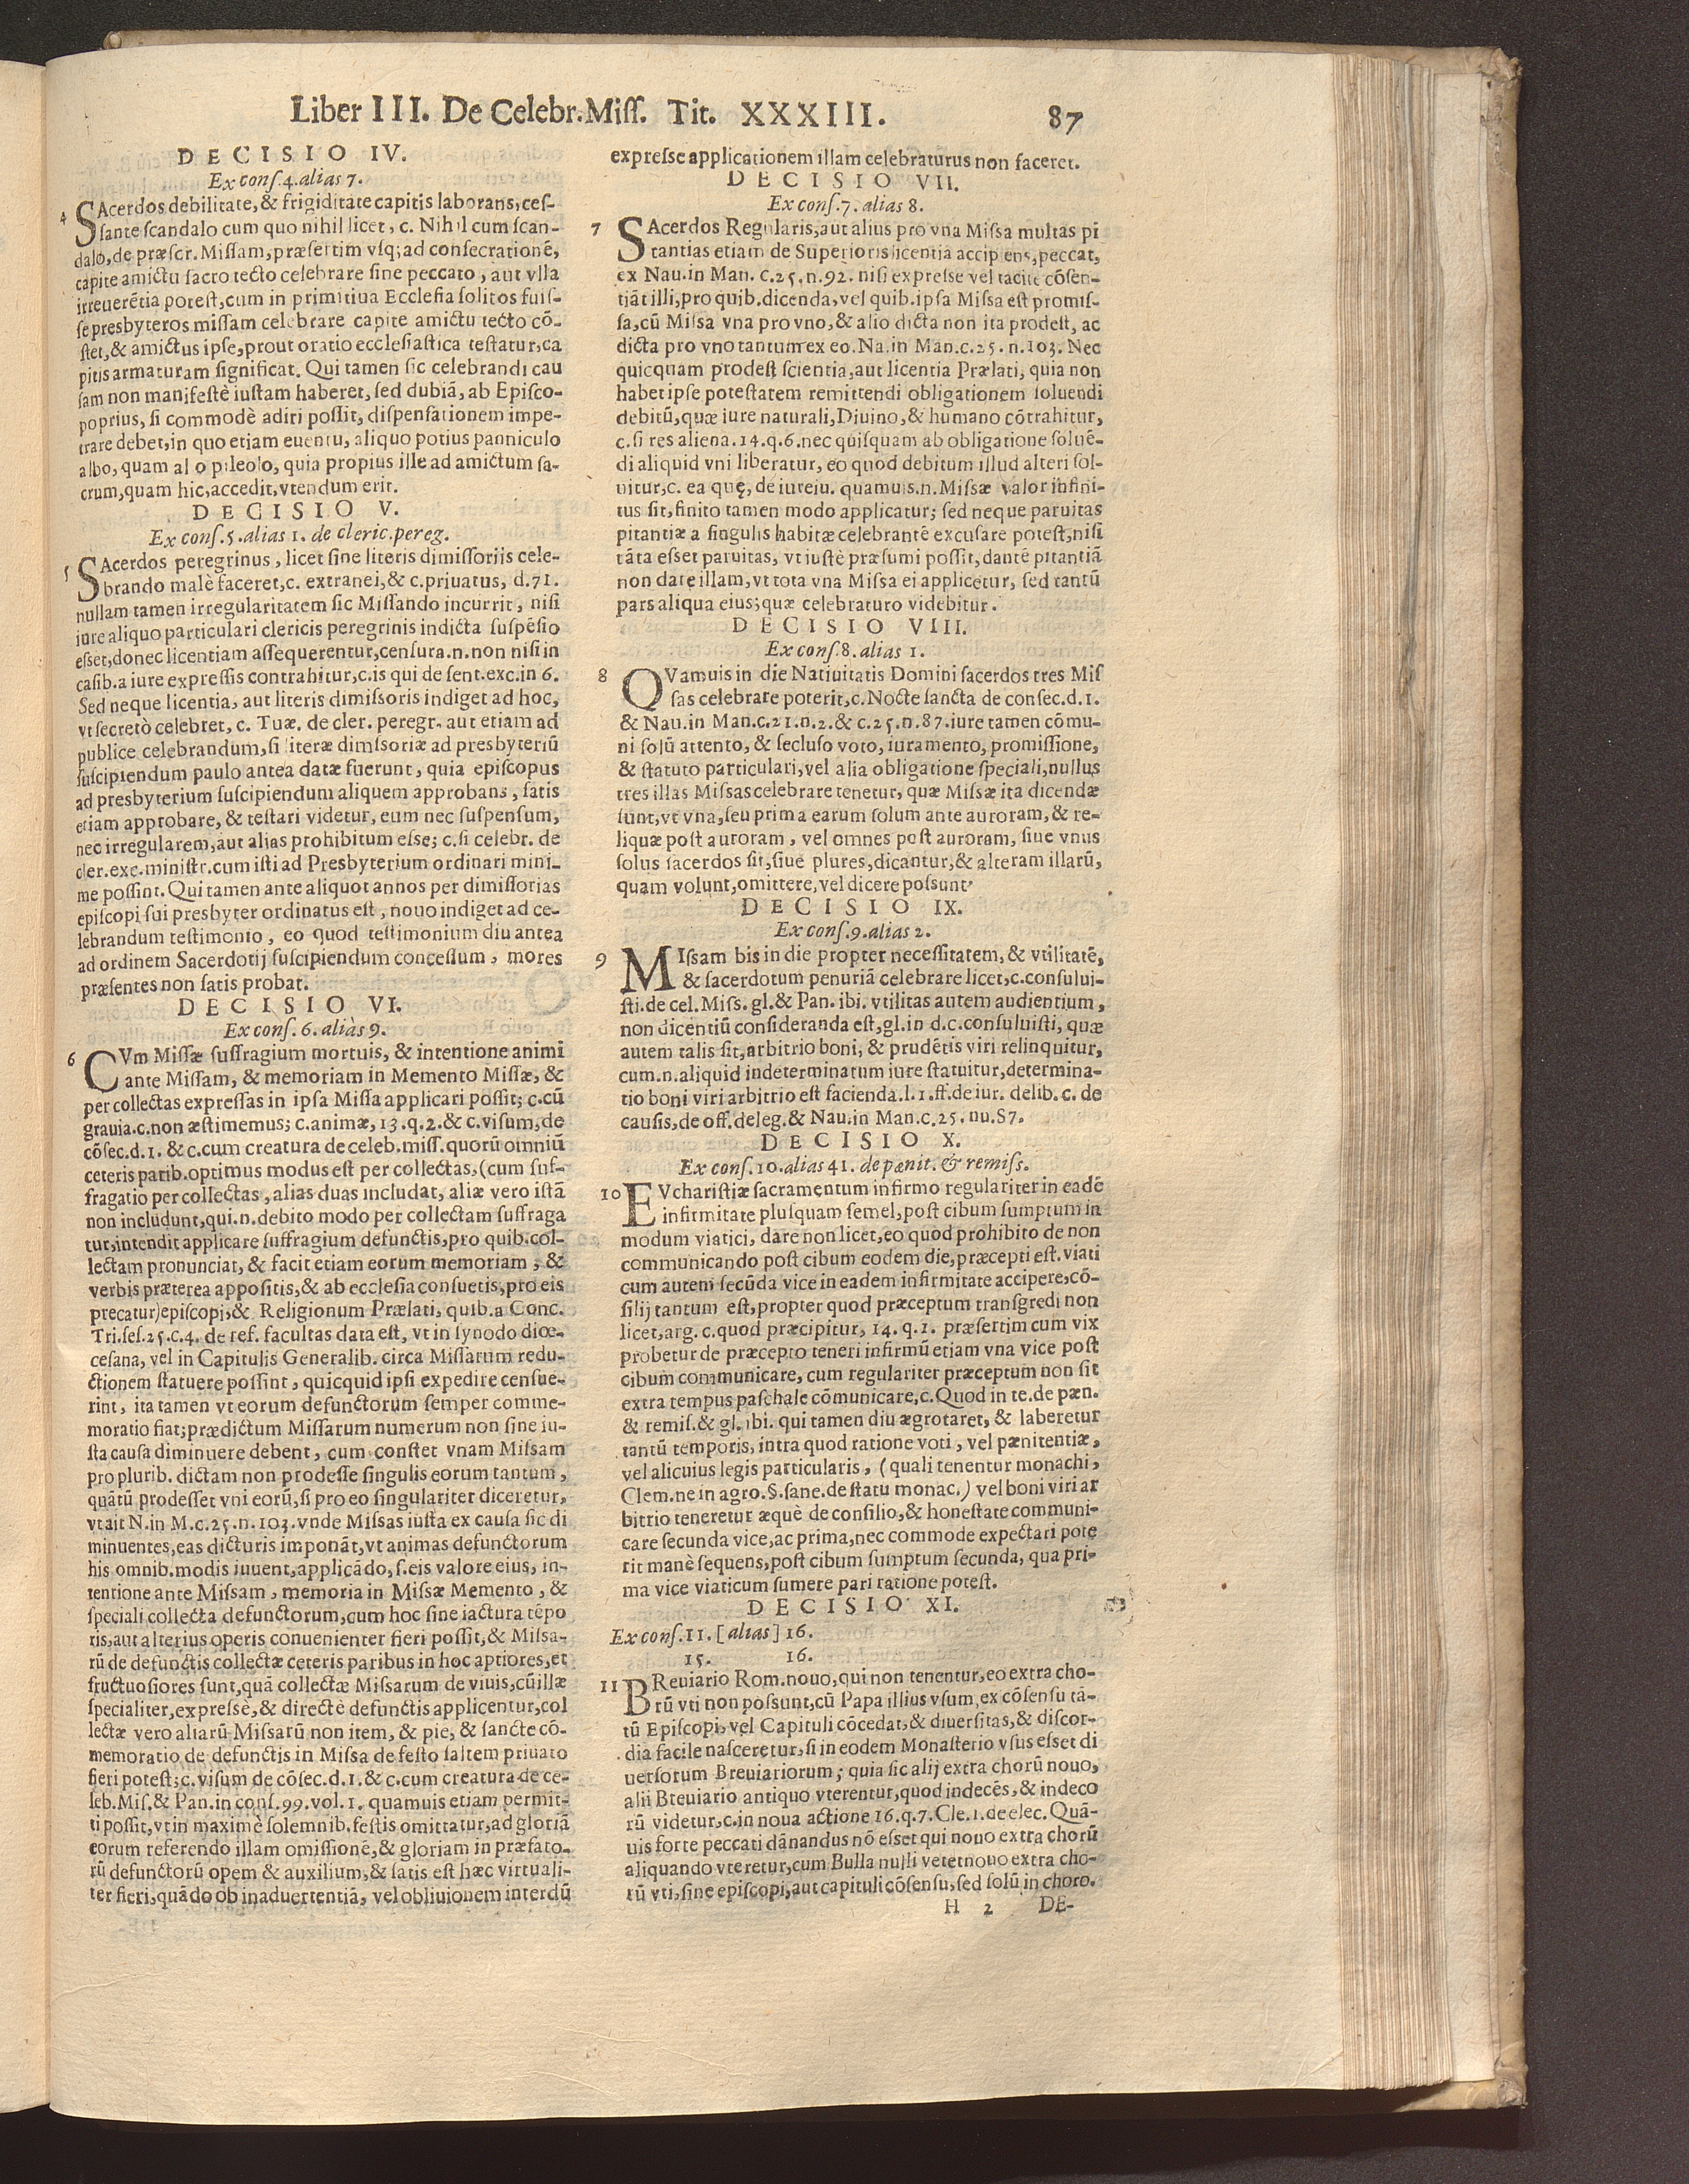 Liber III. De Celebr. Miſſ. Tit. XXXIII. 87
DECISIO IV.
Ex conſ. 4. alias 7.
4 SAcerdos debilitate, & frigiditate capitis laborans, ceſ-
ſante ſcandalo cum quo nihil licet, c. Nihil cum ſcan-
dalo, de præſcr. Miſſam, præſertim vſq; ad conſecrationē,
capite amictu ſacro tecto celebrare ſine peccato, aut vlla
irreuerētia poteſt, cum in primitiua Eccleſia ſolitos fuiſ-
ſe presbyteros miſſam celebrare capite amictu tecto cō-
ſtet, & amictus ipſe, prout oratio eccleſiaſtica teſtatur, ca
pitis armaturam ſignificat. Qui tamen ſic celebrandi cau
ſam non manifeſtè iuſtam haberet, ſed dubiā, ab Epiſco-
poprius, ſi commodè adiri poſſit, diſpenſationem impe-
trare debet, in quo etiam euentu, aliquo potius panniculo
albo, quam al o pileolo, quia propius ille ad amictum ſa-
crum, quam hic, accedit, vtendum erit.
DECISIO V.
Ex conſ. 5. alias 1. de cleric. pereg.
5 SAcerdos peregrinus, licet ſine literis dimiſſoriis cele-
brando malè faceret, c. extranei, & c. priuatus, d. 71.
nullam tamen irregularitatem ſic Miſſando incurrit, niſi
iure aliquo particulari clericis peregrinis indicta ſuſpēſio
eſſet, donec licentiam aſſequerentur, cenſura. n. non niſi in
caſib. a iure expreſſis contrahitur, c. is qui de ſent. exc. in 6.
Sed neque licentia, aut literis dimiſſoris indiget ad hoc,
vt ſecretò celebret, c. Tuæ. de cler. peregr. aut etiam ad
publice celebrandum, ſi literæ dimſſoriæ ad presbyteriū
ſuſcipiendum paulo antea datæ fuerunt, quia epiſcopus
ad presbyterium ſuſcipiendum aliquem approbans, ſatis
etiam approbare, & teſtari videtur, eum nec ſuſpenſum,
nec irregularem, aut alias prohibitum eſſe; c. ſi celebr. de
cler. exc. miniſtr. cum iſti ad Presbyterium ordinari mini-
me poſſint. Qui tamen ante aliquot annos per dimiſſorias
epiſcopi ſui presbyter ordinatus eſt, nouo indiget ad ce-
lebrandum teſtimonio, eo quod teſtimonium diu antea
ad ordinem Sacerdotij ſuſcipiendum conceſſum, mores
præſentes non ſatis probat.
DECISIO VI.
Ex conſ. 6. aliàs 9.
6 CVm Miſſæ ſuffragium mortuis, & intentione animi
ante Miſſam, & memoriam in Memento Miſſæ, &
per collectas expreſſas in ipſa Miſſa applicari poſſit; c. cū
grauia. c. non æſtimemus; c. animæ, 13. q. 2. & c. viſum, de
cōſec. d. 1. & c. cum creatura de celeb. miſſ. quorū omniū
ceteris parib. optimus modus eſt per collectas, (cum ſuf-
fragatio per collectas, alias duas includat, aliæ vero iſtā
non includunt, qui. n. debito modo per collectam ſuffraga
tur, intendit applicare ſuffragium defunctis, pro quib. col-
lectam pronunciat, & facit etiam eorum memoriam, &
verbis præterea appoſitis, & ab eccleſia conſuetis, pro eis
precatur) epiſcopi, & Religionum Prælati, quib. a Conc.
Tri. ſeſ. 25. c. 4. de ref. facultas data eſt, vt in ſynodo diœ-
ceſana, vel in Capitulis Generalib. circa Miſſarum redu-
ctionem ſtatuere poſſint, quicquid ipſi expedire cenſue-
rint, ita tamen vt eorum defunctorum ſemper comme-
moratio fiat; prædictum Miſſarum numerum non ſine iu-
ſta cauſa diminuere debent, cum conſtet vnam Miſsam
pro plurib. dictam non prodeſſe ſingulis eorum tantum,
quātū prodeſſet vni eorū, ſi pro eo ſingulariter diceretur,
vt ait N. in M. c. 25. n. 103. vnde Miſsas iuſta ex cauſa ſic di
minuentes, eas dicturis imponāt, vt animas defunctorum
his omnib. modis iuuent, applicādo, ſ. eis valore eius, in-
tentione ante Miſsam, memoria in Miſsæ Memento, &
ſpeciali collecta defunctorum, cum hoc ſine iactura tēpo
ris, aut alterius operis conuenienter fieri poſſit, & Miſsa-
rū de defunctis collectæ ceteris paribus in hoc aptiores, et
fructuoſiores ſunt, quā collectæ Miſsarum de viuis, cū illæ
ſpecialiter, expreſſè, & directè defunctis applicentur, col
lectæ vero aliarū Miſsarū non item, & pie, & ſancte cō-
memoratio de defunctis in Miſsa de feſto ſaltem priuato
fieri poteſt; c. viſum de cōſec. d. 1. & c. cum creatura de ce-
leb. Miſ. & Pan. in conſ. 99. vol. 1. quamuis etiam permit-
ti poſſit, vt in maximè ſolemnib. feſtis omittatur, ad gloriā
eorum referendo illam omiſſionē, & gloriam in præfato-
rū defunctorū opem & auxilium, & ſatis eſt hæc virtuali-
ter fieri, quādo ob inaduertentiā, vel obliuionem interdū
expreſse applicationem illam celebraturus non faceret.
DECISIO VII.
Ex conſ. 7. alias 8.
7 SAcerdos Regularis, aut alius pro vna Miſsa multas pi
tantias etiam de Superioris licentia accipiens, peccat,
ex Nau. in Man. c. 25. n. 92. niſi expreſse vel tacite cōſen-
tiāt illi, pro quib. dicenda, vel quib. ipſa Miſsa eſt promiſ-
ſa, cū Miſsa vna pro vno, & alio dicta non ita prodeſt, ac
dicta pro vno tantum ex eo. Na. in Man. c. 25. n. 103. Nec
quicquam prodeſt ſcientia, aut licentia Prælati, quia non
habet ipſe poteſtatem remittendi obligationem ſoluendi
debitū, quæ iure naturali, Diuino, & humano cōtrahitur,
c. ſi res aliena. 14. q. 6. nec quiſquam ab obligatione ſoluē-
di aliquid vni liberatur, eo quod debitum illud alteri ſol-
uitur, c. ea quę, de iureiu. quamuis. n. Miſsæ valor infini-
tus ſit, finito tamen modo applicatur; ſed neque paruitas
pitantiæ a ſingulis habitæ celebrantē excuſare poteſt, niſi
tāta eſset paruitas, vt iuſtè præſumi poſſit, dantē pitantiā
non date illam, vt tota vna Miſsa ei applicetur, ſed tantū
pars aliqua eius; quæ celebraturo videbitur.
DECISIO VIII.
Ex conſ. 8. alias 1.
8 QVamuis in die Natiuitatis Domini ſacerdos tres Miſ
ſas celebrare poterit, c. Nocte ſancta de conſec. d. 1.
& Nau. in Man. c. 21. n. 2. & c. 25. n. 87. iure tamen cōmu-
ni ſolū attento, & ſecluſo voto, iuramento, promiſſione,
& ſtatuto particulari, vel alia obligatione ſpeciali, nullus
tres illas Miſsas celebrare tenetur, quæ Miſsæ ita dicendæ
ſunt, vt vna, ſeu prima earum ſolum ante auroram, & re-
liquæ poſt auroram, vel omnes poſt auroram, ſiue vnus
ſolus ſacerdos ſit, ſiue plures, dicantur, & alteram illarū,
quam volunt, omittere, vel dicere poſsunt.
DECISIO IX.
Ex conſ. 9. alias 2.
9 MIſsam bis in die propter neceſſitatem, & vtilitatē,
& ſacerdotum penuriā celebrare licet, c. conſului-
ſti. de cel. Miſs. gl. & Pan. ibi. vtilitas autem audientium,
non dicentiū conſideranda eſt, gl. in d. c. conſuluiſti, quæ
autem talis ſit, arbitrio boni, & prudētis viri relinquitur,
cum. n. aliquid indeterminatum iure ſtatuitur, determina-
tio boni viri arbitrio eſt facienda. l. 1. ff. de iur. delib. c. de
cauſis, de off. deleg. & Nau. in Man. c. 25. nu. 87.
DECISIO X.
Ex conſ. 10. alias 41. de pænit. & remiſs.
10 EVchariſtiæ ſacramentum infirmo regulariter in eadē
infirmitate pluſquam ſemel, poſt cibum ſumptum in
modum viatici, dare non licet, eo quòd prohibito de non
communicando poſt cibum eodem die, præcepti eſt. viati
cum autem ſecūda vice in eadem infirmitate accipere, cō-
ſilij tantum eſt, propter quod præceptum tranſgredi non
licet, arg. c. quod præcipitur, 14. q. 1. præſertim cum vix
probetur de præcepto teneri infirmū etiam vna vice poſt
cibum communicare, cum regulariter præceptum non ſit
extra tempus paſchale cōmunicare, c. Quod in te. de pæn.
& remiſ. & gl. ibi. qui tamen diu ægrotaret, & laberetur
tantū temporis, intra quod ratione voti, vel pænitentiæ,
vel alicuius legis particularis, (quali tenentur monachi,
Clem. ne in agro. §. ſane. de ſtatu monac.) vel boni viri ar
bitrio teneretur æquè de conſilio, & honeſtate communi-
care ſecunda vice, ac prima, nec commode expectari pote
rit manè ſequens, poſt cibum ſumptum ſecunda, qua pri-
ma vice viaticum ſumere pari ratione poteſt.
DECISIO XI.
Ex conſ. 11. [alias] 16.
15. 16.
11 BReuiario Rom. nouo, qui non tenentur, eo extra cho-
rū vti non poſsunt, cū Papa illius vſum, ex cōſenſu tā-
tū Epiſcopi, vel Capituli cōcedat, & diuerſitas, & diſcor-
dia facile naſceretur, ſi in eodem Monaſterio vſus eſset di
uerſorum Breuiariorum; quia ſic alij extra chorū nouo,
alii Breuiario antiquo vterentur, quod indecēs, & indeco
rū videtur, c. in noua actione 16. q. 7. Cle. 1. de elec. Quā-
uis forte peccati dānandus nō eſset qui nouo extra chorū
aliquando vteretur, cum Bulla nulli vetet nouo extra cho-
rū vti, ſine epiſcopi, aut capituli cōſenſu, ſed ſolū in choro.
H 2 DE-